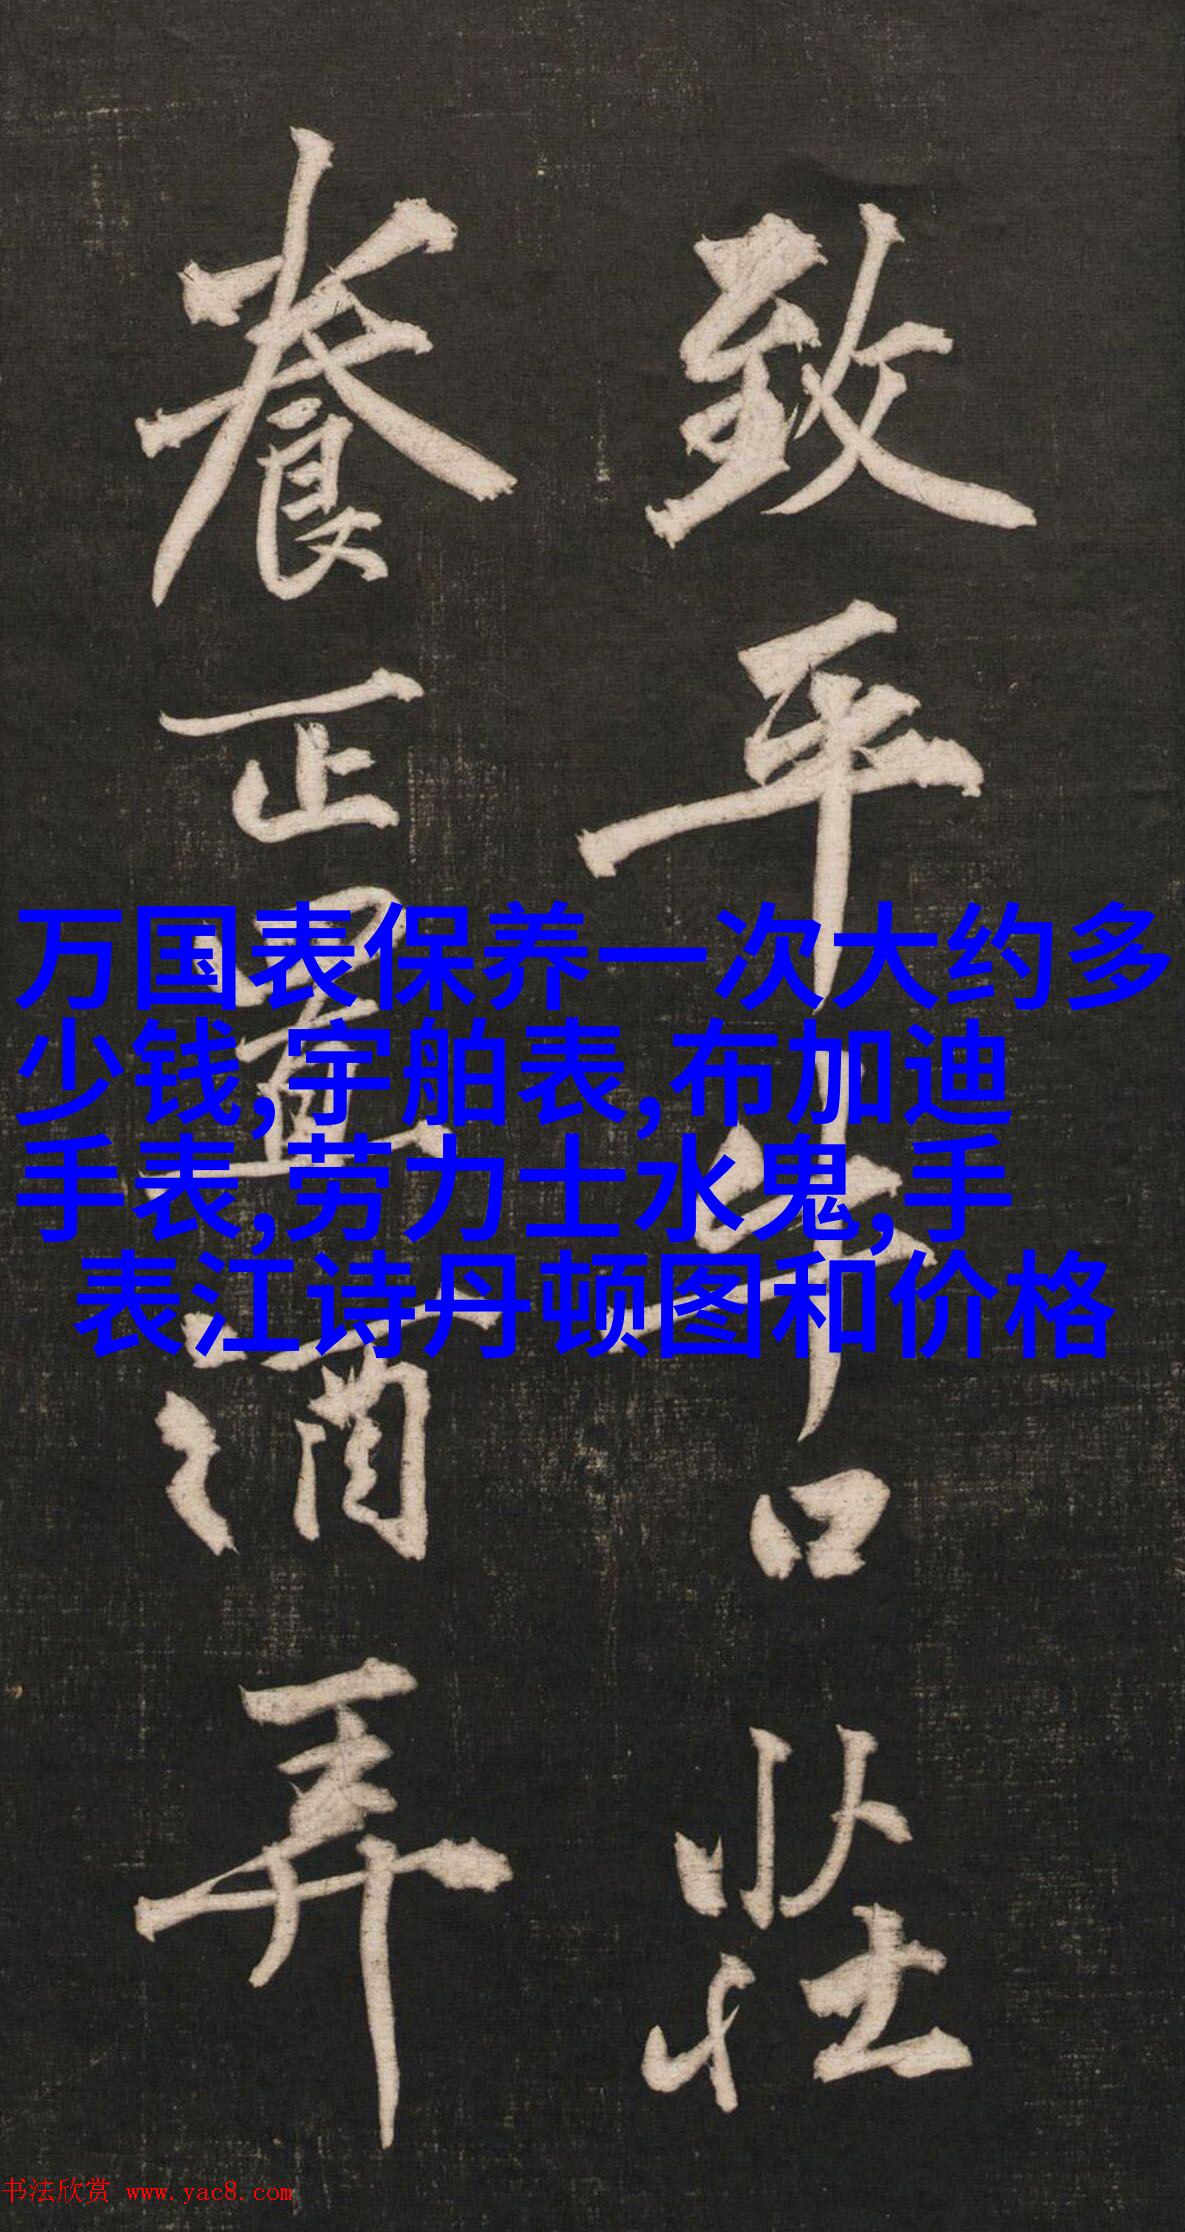 致平牛口莊
養正置酒弄
万国表保养一次大约多
少钱,宇舶表,布加迪
手表,劳力士水鬼,手
表江诗丹顿图和价格
书法欣赏 www.yac8.com